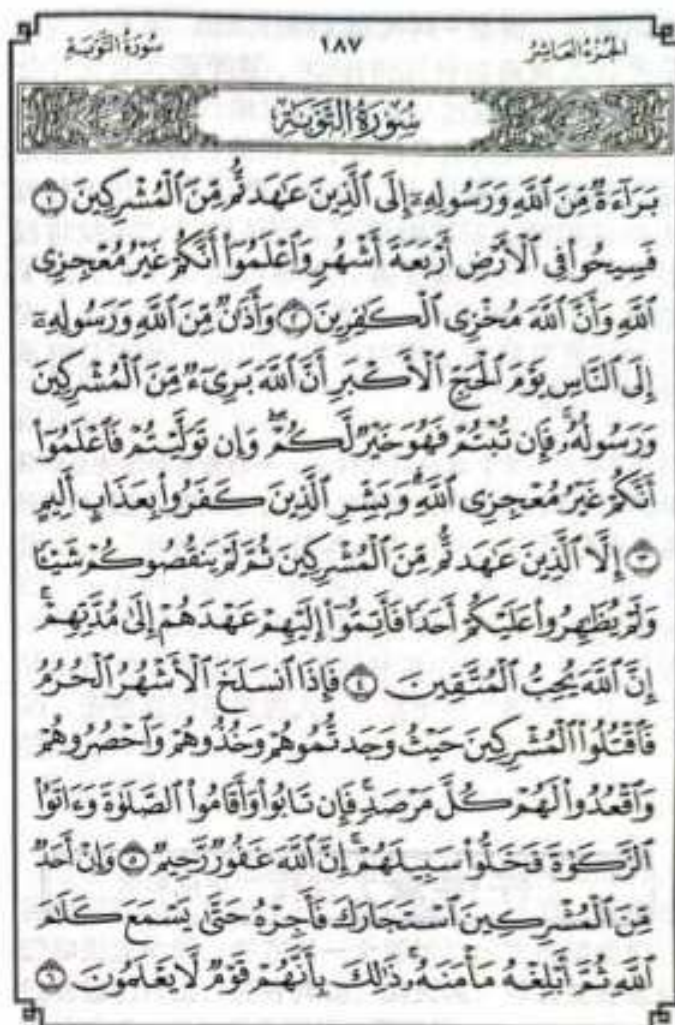 الجزء العاشر ١٨٧ سورة التوبة
سورة التوبة
بَرَآءَةٌ مِّنَ ٱللَّهِ وَرَسُولِهِۦٓ إِلَى ٱلَّذِينَ عَٰهَدتُّم مِّنَ ٱلْمُشْرِكِينَ ١
فَسِيحُوا۟ فِى ٱلْأَرْضِ أَرْبَعَةَ أَشْهُرٍ وَٱعْلَمُوٓا۟ أَنَّكُمْ غَيْرُ مُعْجِزِى
ٱللَّهِ وَأَنَّ ٱللَّهَ مُخْزِى ٱلْكَٰفِرِينَ ٢ وَأَذَٰنٌ مِّنَ ٱللَّهِ وَرَسُولِهِۦٓ
إِلَى ٱلنَّاسِ يَوْمَ ٱلْحَجِّ ٱلْأَكْبَرِ أَنَّ ٱللَّهَ بَرِىٓءٌ مِّنَ ٱلْمُشْرِكِينَ
وَرَسُولُهُۥ ۚ فَإِن تُبْتُمْ فَهُوَ خَيْرٌ لَّكُمْ ۖ وَإِن تَوَلَّيْتُمْ فَٱعْلَمُوٓا۟
أَنَّكُمْ غَيْرُ مُعْجِزِى ٱللَّهِ ۗ وَبَشِّرِ ٱلَّذِينَ كَفَرُوا۟ بِعَذَابٍ أَلِيمٍ
٣ إِلَّا ٱلَّذِينَ عَٰهَدتُّم مِّنَ ٱلْمُشْرِكِينَ ثُمَّ لَمْ يَنقُصُوكُمْ شَيْـًٔا
وَلَمْ يُظَٰهِرُوا۟ عَلَيْكُمْ أَحَدًا فَأَتِمُّوٓا۟ إِلَيْهِمْ عَهْدَهُمْ إِلَىٰ مُدَّتِهِمْ ۚ
إِنَّ ٱللَّهَ يُحِبُّ ٱلْمُتَّقِينَ ٤ فَإِذَا ٱنسَلَخَ ٱلْأَشْهُرُ ٱلْحُرُمُ
فَٱقْتُلُوا۟ ٱلْمُشْرِكِينَ حَيْثُ وَجَدتُّمُوهُمْ وَخُذُوهُمْ وَٱحْصُرُوهُمْ
وَٱقْعُدُوا۟ لَهُمْ كُلَّ مَرْصَدٍ ۚ فَإِن تَابُوا۟ وَأَقَامُوا۟ ٱلصَّلَوٰةَ وَءَاتَوُا۟
ٱلزَّكَوٰةَ فَخَلُّوا۟ سَبِيلَهُمْ ۚ إِنَّ ٱللَّهَ غَفُورٌ رَّحِيمٌ ٥ وَإِنْ أَحَدٌ
مِّنَ ٱلْمُشْرِكِينَ ٱسْتَجَارَكَ فَأَجِرْهُ حَتَّىٰ يَسْمَعَ كَلَٰمَ
ٱللَّهِ ثُمَّ أَبْلِغْهُ مَأْمَنَهُۥ ۚ ذَٰلِكَ بِأَنَّهُمْ قَوْمٌ لَّا يَعْلَمُونَ ٦